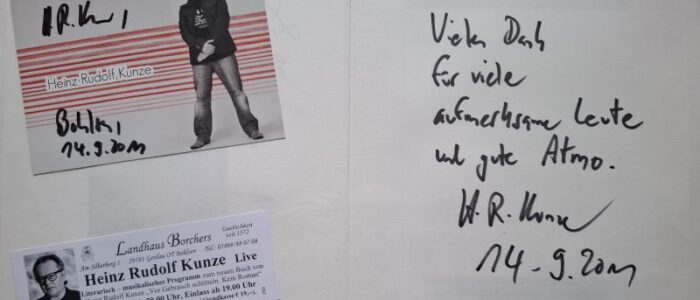 H.R. Kunze
Heinz Rudolf Kunze
Bohlsen,
14.9.2011
Landhaus Borchers
Gastlichkeit
seit 1572
Am Silberberg 1
29581 Gerdau OT Bohlsen
Tel.: 05808 48 07 08
Heinz Rudolf Kunze Live
Literarisch - musikalisches Programm zum neuen Buch von
Heinz Rudolf Kunze „Vor Gebrauch schütteln. Kein Roman“
Uhr, Einlass ab 19.00 Uhr
Vielen Dank
für viele
aufmerksame Leute
und gute Atmo.
H.R. Kunze
14.9.2011